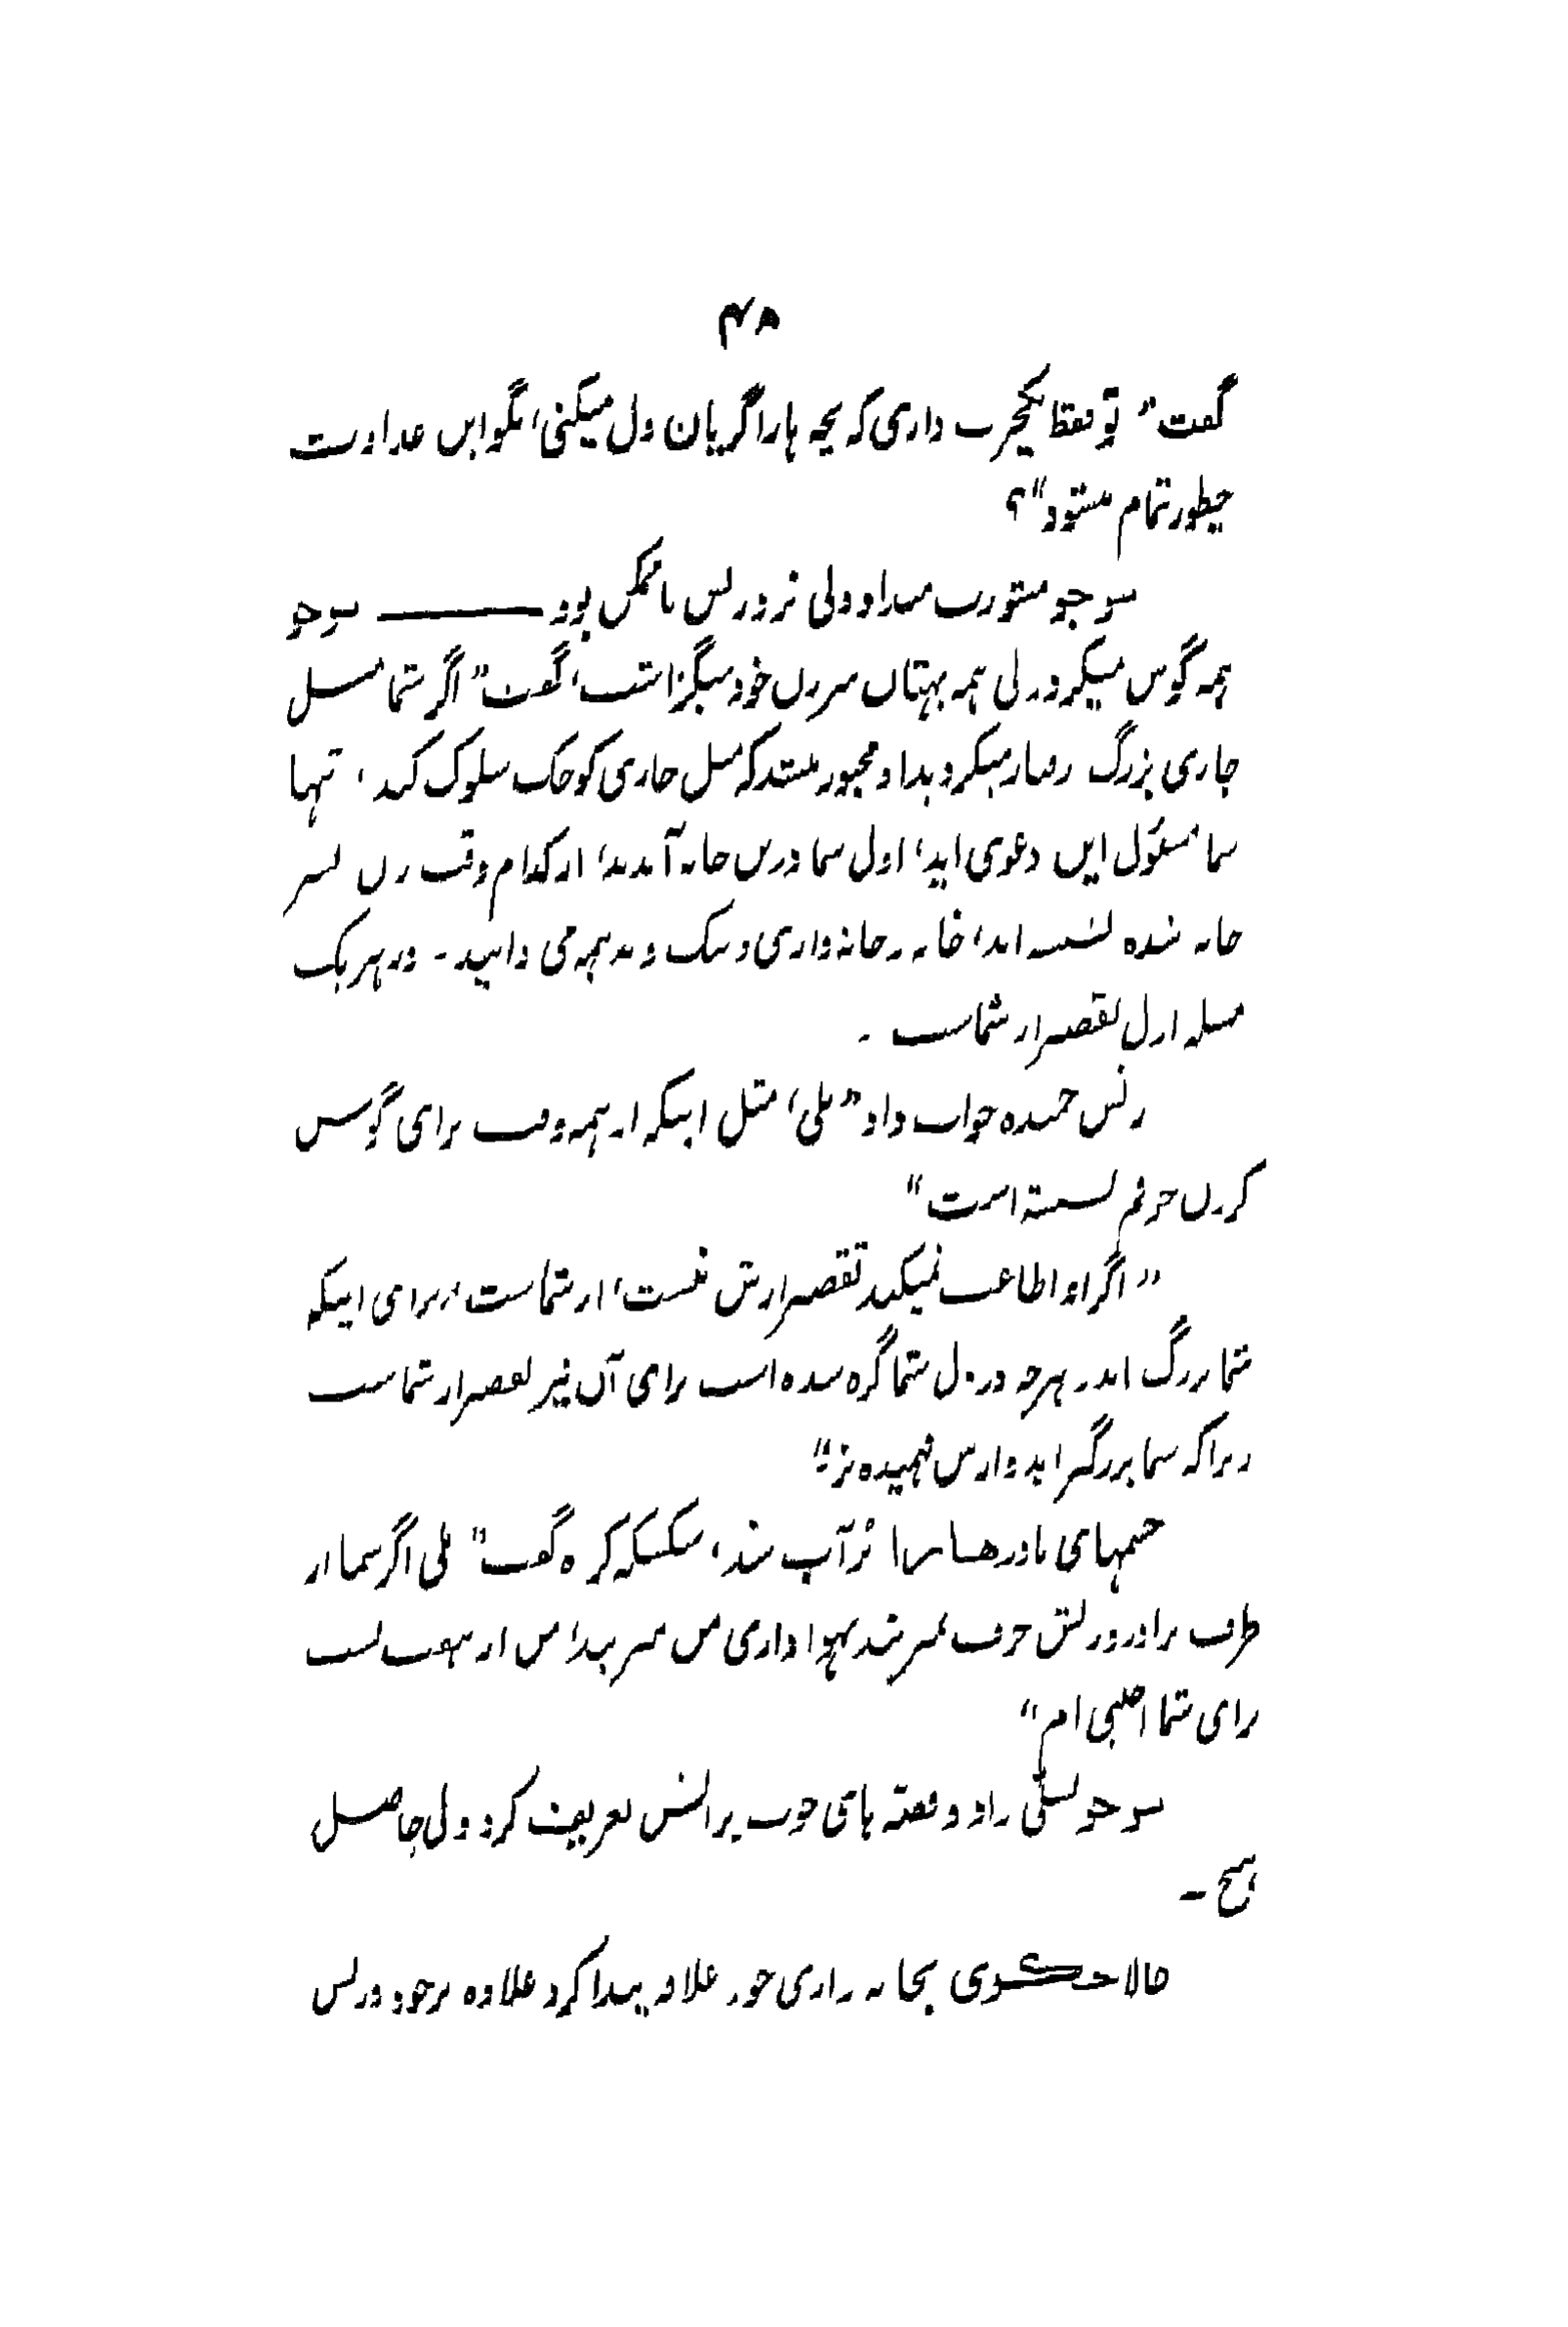 ۴۸
گفت" تو فقط یکحرف داری که بچه ها را گریان ول میکنی، بگو این عداوت
چطور تمام میشود"؟
سوجو مشورت میداد ولی نزد رلس ناممکن بود ــــــ سوجو
همه گوش میکرد ولی همه بهتان سر رلس خود میگزاشت، گفت" اگر شما مثل
جاری بزرگ رفتار میکردید او مجبور میشد که مثل جاری کوچک سلوک کند، تنها
شما مسئول این دعوی اید، اول شما درین خانه آمدید، از کدام وقت زن پسر
خانه شده نشسته اید، خانه و خانه داری و نیک و بد همه می دانید ـ در هر یک
مسله اول تقصیر از شماست ـ
رلس خنده جواب داد" بلی، مثل اینکه از همه وقت برای گوش
کردن حرفم نشسته است"
"اگر او اطاعت نمیکند تقصیر ازش نیست، از شماست، برای اینکه
شما بزرگ اید ر هرچه در دل شما گره شده است برای آن نیز تقصیر از شماست
زیرا که شما بزرگتر اید و ازش فهمیده تر"
چشمهای مادر پر آب شد، گفت" بلی اگر شما از
طرف برادر حرف نمیزنید هوا داری میں از
برای شما اجنبی ام"
سوجو تسلی داد و قصه های خوب برایش تعریف کرد ولی حاصل
هیچ ـ
حالا بخانه داری خود علاقه پیدا کرد علاوه بر خود